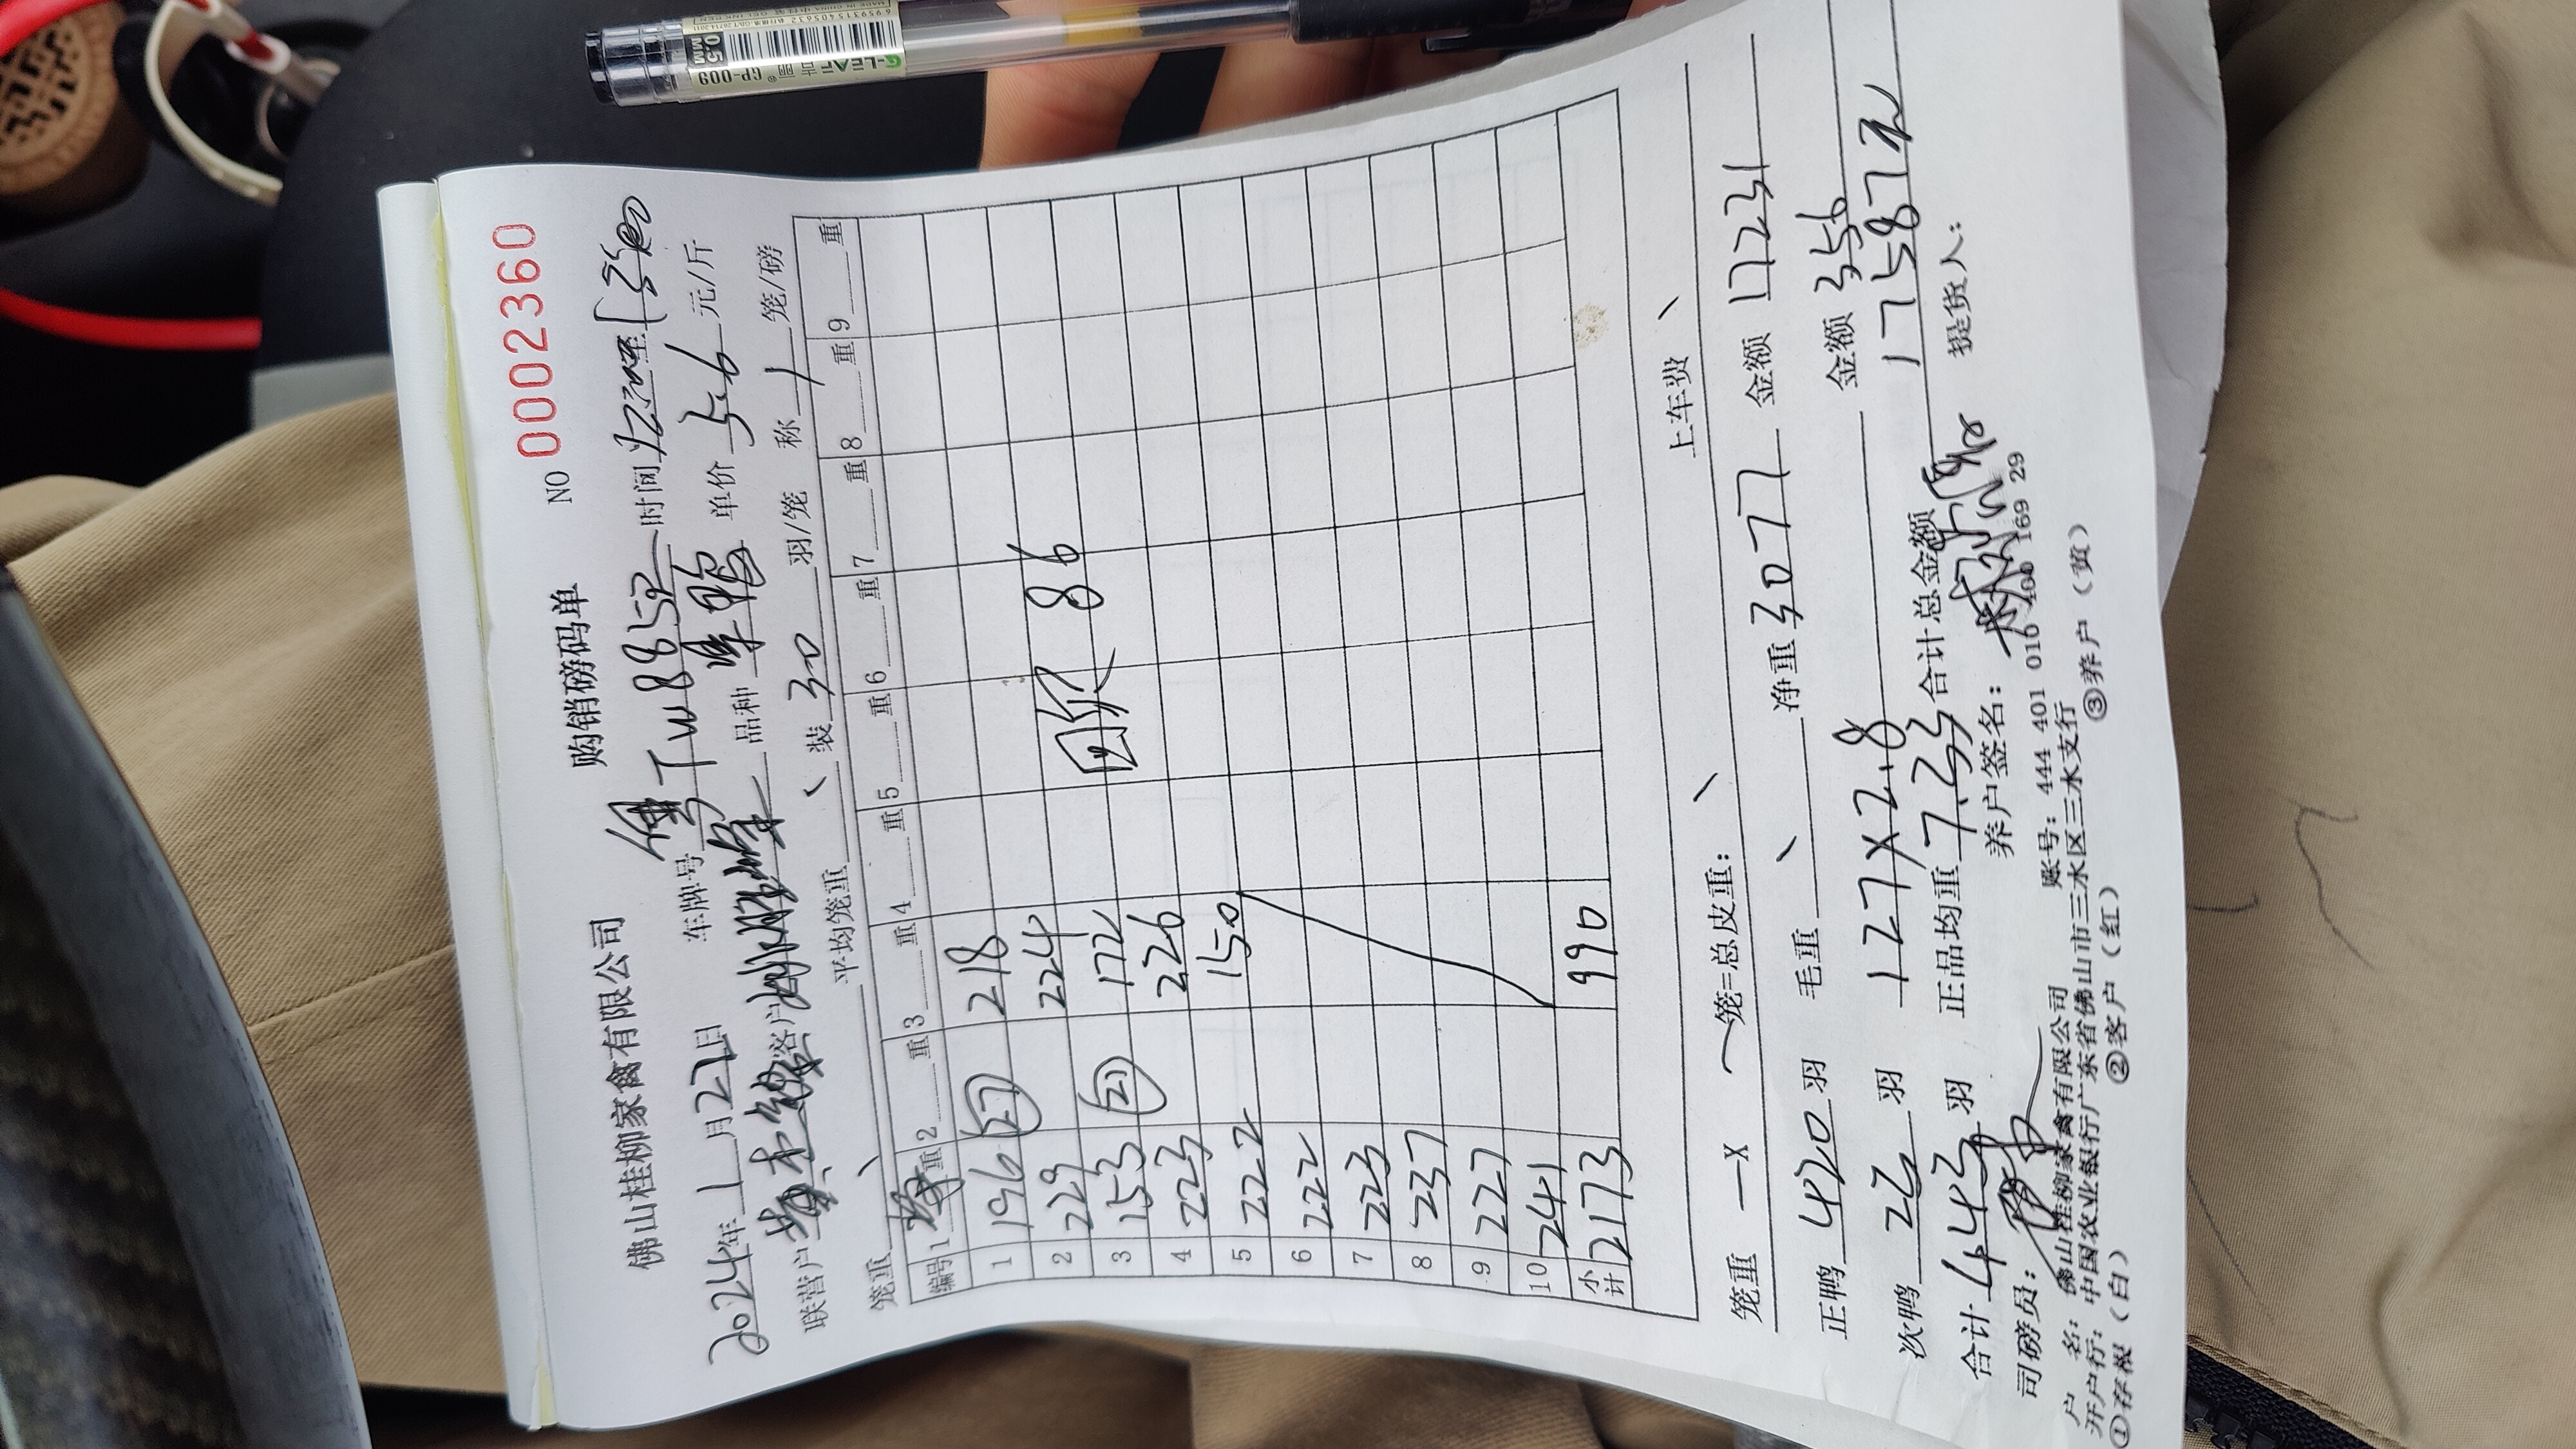 佛山桂柳家禽有限公司 购销磅码单 NO 0002360
2024年1月27日 车牌号 时间
联营户 客户 品种 单价 5.6 元/斤
笼重 平均笼重 装 30 羽/笼 称 1 笼/磅
编号 1 重 2 重 3 重 4 重 5 重 6 重 7 重 8 重 9 重
1 196 218
2 229 224 86
3 153 172
4 223 226
5 222 150
6 222
7 223
8 237
9 227
10 241
小计 2173 990
上车费
笼重 —X 笼=总皮重:
正鸭 420 羽 毛重 净重 3077 金额 17231
次鸭 羽 127X2.8 金额 356
合计 443 羽 正品均重 7.33 合计总金额 17587元
司磅员: 养户签名: 提货人:
户 名: 佛山桂柳家禽有限公司 账号: 444 401 010 400 169 29
开户行: 中国农业银行广东省佛山市三水区三水支行
①存根(白) ②客户(红) ③养户(黄)
GP-009
0.5 MM
6959315405632
MADE IN CHINA